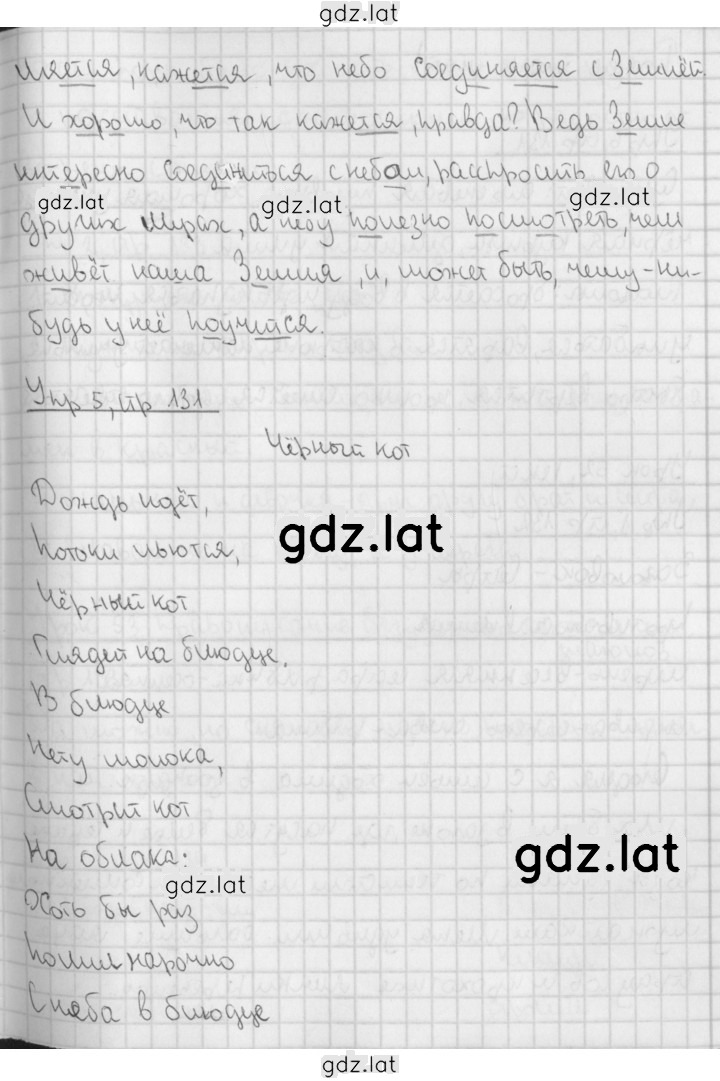 gdz.lat
мляется, кажется, что небо соединяется с Землёй.
И хорошо, что так кажется, правда? Ведь Земле
интересно соединиться с небом, расспросить его о
gdz.lat
gdz.lat
gdz.lat
других мирах, а небу полезно посмотреть, чем
живёт наша Земля, и, может быть, чему-ни-
будь у неё поучится.
Упр 5, стр 131
Чёрный кот
Дождь идёт,
gdz.lat
Потоки льются,
Чёрный кот
Глядит на блюдце.
В блюдце
Нету молока,
Смотрит кот
gdz.lat
На облака:
gdz.lat
Хоть бы раз
Полил нарочно
С неба в блюдце
gdz.lat